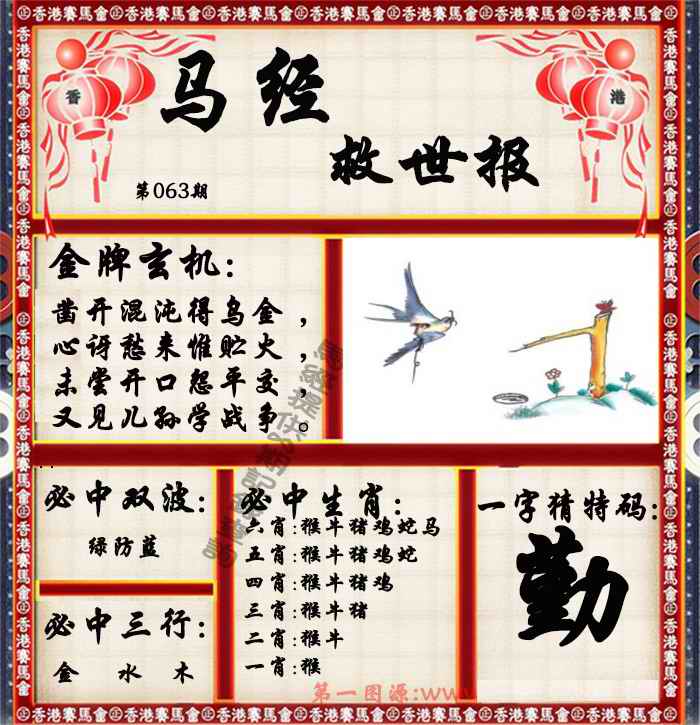 香港賽馬會
香
港
马经
救世报
第063期
金牌玄机:
凿开混沌得乌金，
心讶愁来惟贮火，
未尝开口怨平交，
又见儿孙学战争。
必中双波:
绿防蓝
必中三行:
金 水 木
必中生肖:
六肖:猴牛猪鸡蛇马
五肖:猴牛猪鸡蛇
四肖:猴牛猪鸡
三肖:猴牛猪
二肖:猴牛
一肖:猴
一字猜特码:
勤
第一图源:www